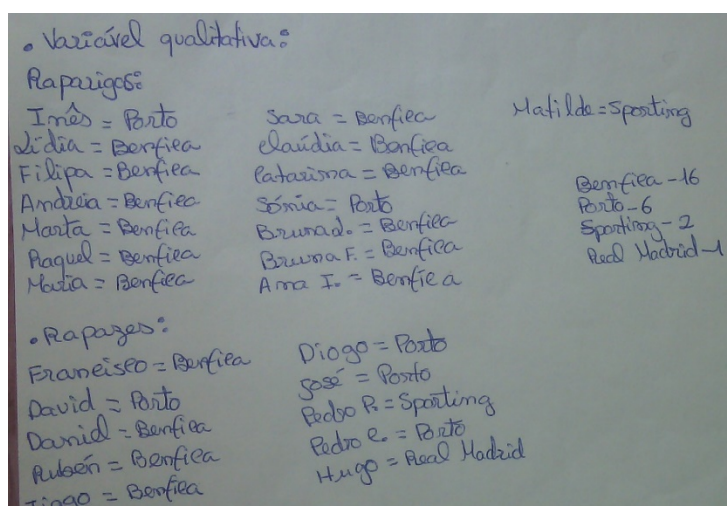 • Variável qualitativa:
Raparigas:
Inês = Porto
Lídia = Benfica
Filipa = Benfica
Andreia = Benfica
Marta = Benfica
Raquel = Benfica
Maria = Benfica
Sara = Benfica
Claúdia = Benfica
Catarina = Benfica
Sónia = Porto
Bruna d. = Benfica
Bruna F. = Benfica
Ana I. = Benfica
Matilde = Sporting
Benfica - 16
Porto - 6
Sporting - 2
Real Madrid - 1
• Rapazes:
Francisco = Benfica
David = Porto
Daniel = Benfica
Rubén = Benfica
Tiago = Benfica
Diogo = Porto
José = Porto
Pedro P. = Sporting
Pedro C. = Porto
Hugo = Real Madrid